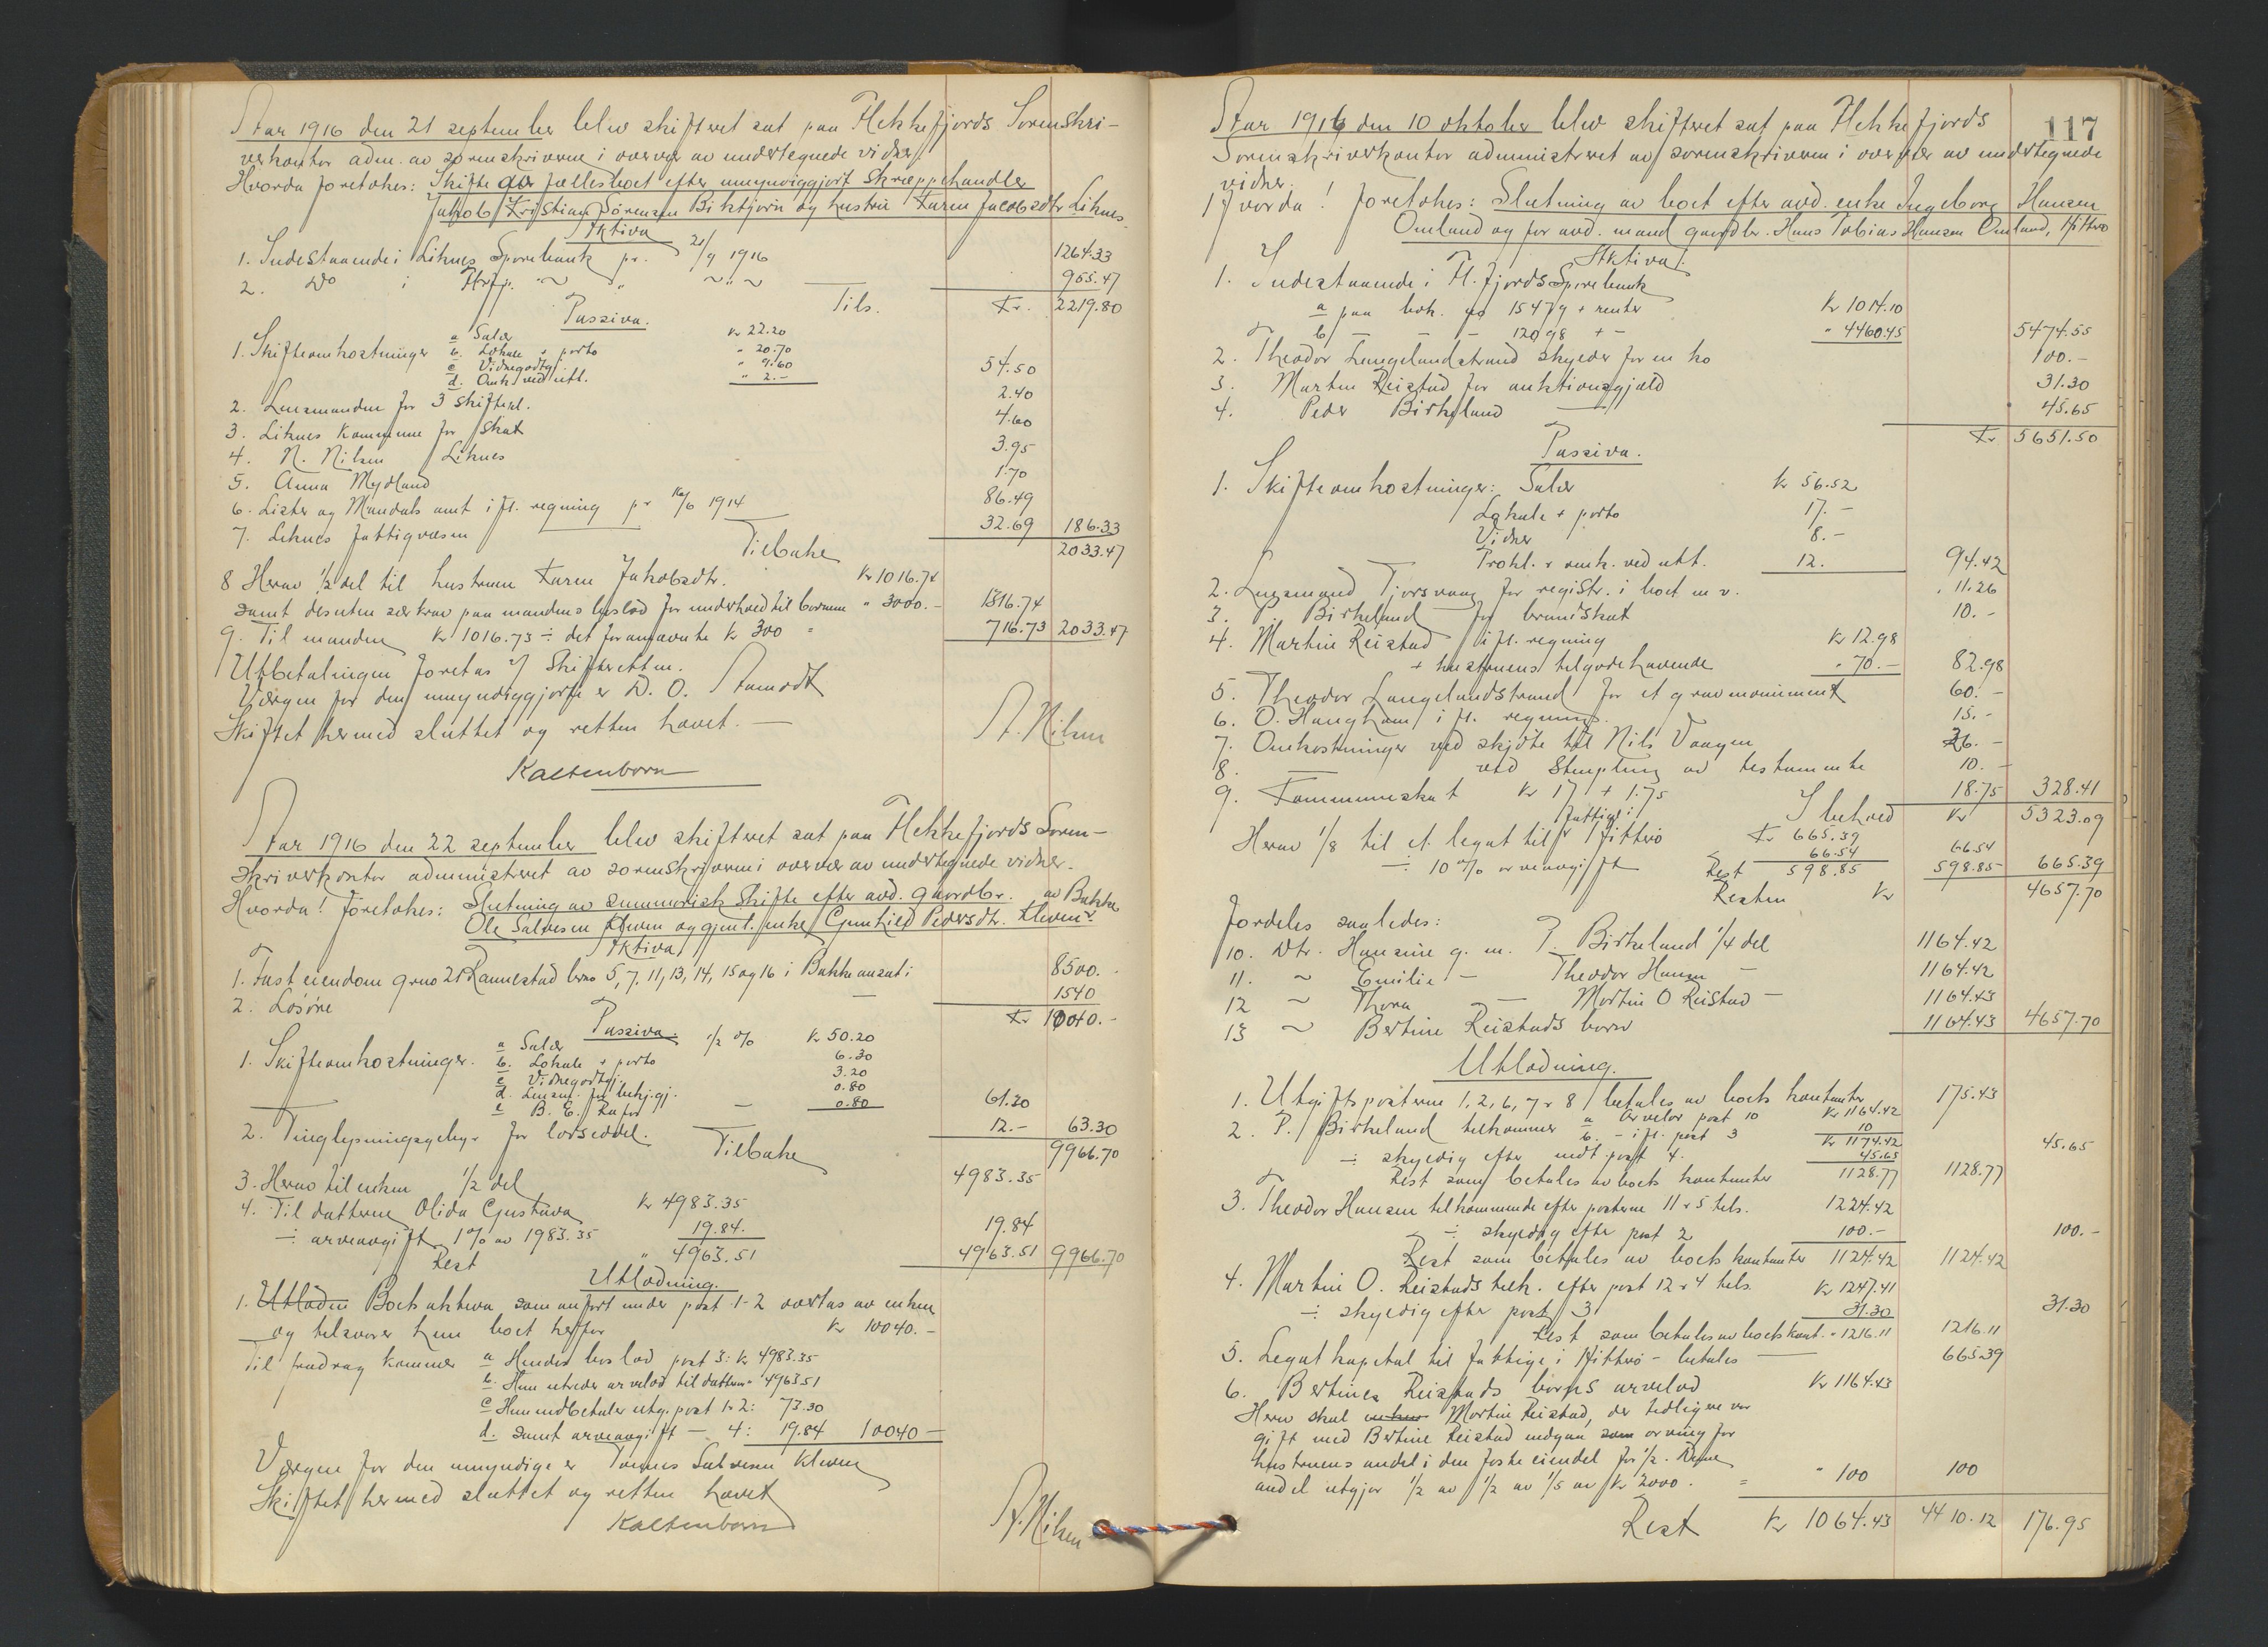 Aar 1916 den 21 september blev skifteret sat paa Flekkefjords Sorenskri-
verkontor adm. av sorenskriveren i overvær av undertegnede vidner.
Hvorda foretokes: Skifte over fællesboet efter umyndiggjort skræppehandler
Jakob Kristian Sørensen Birkhjørn og hustru Karen Jacobsdtr Liknes.
Aktiva
1. Indestaaende i Liknes Sparebank pr. 21/9 1916 1264.33
2. Do i Flkfj. ~ " ~ " ~ 955.47
Tils. Kr. 2219.80
Passiva.
1. Skifteomkostninger a Salær Kr 22.20
b. Lokale + porto " 20.70
c Vidnegodtgj. " 9.60
d. Omk. ved utl. " 2.- 54.50
2. Lensmanden for 3 skiftepl. 2.40
3. Liknes kommune for skat 4.60
4. N. Nilsen Liknes 3.95
5. Anna Mydland 1.70
6. Lister og Mandals amt ifl. regning pr 1914 86.49
7. Liknes fattigvæsen 32.69 186.33
Tilbake 2033.47
8 Herav 1/2 del til hustruen Karen Jakobsdtr. Kr 1016.74
samt desuten særkrav paa mandens boslod for underhold til barnene " 300.- 1316.74
9. Til manden Kr 1016.73 ÷ det foranførte kr 300 = 716.73 2033.47
Utbetalingen foretas af skifteretten.
Værgen for den umyndiggjorte er D. O. Stamodt
Skiftet hermed sluttet og retten hævet. —
Kaltenborn
A. Nilsen
Aar 1916 den 22 september blev skifteret sat paa Flekkefjords Soren-
skriverkontor administreret av sorenskriveren i overvær av undertegnede vidner.
Hvorda! foretokes: Slutning av summarisk skifte efter avd. gaardbr. av Bakke
Ole Salvesen Kleven og gjenl. enke Gunhild Pedersdtr. Kleven
Aktiva
1. Fast eiendom gno 21 Rannestad bno 5, 7, 11, 13, 14, 15 og 16 i Bakke ansat i 8500.-
2. Løsøre — 1540
Kr 10040.-
Passiva. 1/2 %
1. Skifteomkostninger. a Salær Kr 50.20
b. Lokale + porto 6.30
c Vidnegodtgj. 3.20
d. Lensm. for bekj.gj. 0.80
e B. E. Rafos — 0.80 61.30
2. Tinglysningsgebyr for lodseddel. 12.- 63.30
Tilbake 9966.70
3. Herav til enken 1/2 del 4983.35
4. Til datteren Olida Gustava Kr 4983.35
÷ arveavgift 1% av 1983.35 19.84. 19.84
Rest " 4963.51 4963.51 9966.70
Utlodning.
1. Utloden Boets aktiva som anført under post 1-2 overtas av enken
og tilsvarer hun boet herfor Kr 10040.-
Til fradrag kommer a Hendes boslod post 3: kr 4983.35
b. Hun utreder arvelod til datteren " 4963.51
c Hun indbetaler utg. post 1+2: 73.30
d. samt arveavgift — 4: 19.84 10040 —
Værgen for den umyndige er Tønnes Salvesen Kleven
Skiftet hermed sluttet og retten hævet
Kaltenborn
A. Nilsen
117
Aar 1916 den 10 oktober blev skifteret sat paa Flekkefjords
Sorenskriverkontor administreret av sorenskriveren i overvær av undertegnede
vidner.
Hvorda! foretokes: Slutning av boet efter avd. enke Ingeborg Hansen
Omland og før avd. mand gaardbr. Hans Tobias Hansen Omland, Hitterø
Aktiva.
1. Indestaaende i Fl.fjords Sparebank
a paa bok. no 15479 + renter Kr 1014.10
b — - - 12098 + - " 4460.45 5474.55
2. Theodor Langelandstrand skylder for en ko 100.-
3. Martin Reistad for auktionsgjæld 31.30
4. Peder Birkeland — 45.65
Kr 5651.50
Passiva.
1. Skifteomkostninger: Salær Kr 56.52
Lokale + porto 17.-
Vidner 8.-
Prokl. + omk. ved utl. 12. 94.42
2. Lensmand Tjorsvaag for registr. i boet m. v. 11.26
3. P. Birkeland for brandskat 10.-
4. Martin Reistad ifl. regning Kr 12.98
+ hustruens tilgodehavende " 70.- 82.98
5. Theodor Langelandstrand for et gravmoniment 60.-
6. O. Haugham ifl. regning. 15.-
7. Omkostninger ved skjøte til Nils Vaagen 26.-
8. — ved stempling av testamente 10.-
9. Kommuneskat kr 17 + 1.75 18.75 328.41
I behold Kr 5323.09
Herav 1/8 til et legat til fattige i Hitterø Kr 665.39
÷ 10% arveavgift 66.54 66.54
Rest 598.85 598.85 665.39
Resten Kr 4657.70
fordeles saaledes:
10. Dtr. Hansine g. m. P. Birkeland 1/4 del 1164.42
11. ~ Emilie — Theodor Hansen — 1164.42
12 ~ Thora — Martin O Reistad — 1164.43
13 ~ Bertine Reistads barn 1164.43 4657.70
Utlodning.
1. Utgiftsposterne 1, 2, 6, 7 + 8 betales av boets kontanter 175.43
2. P. Birkeland tilkommer a arvelod post 10 Kr 1164.42
b. - ifl. post 3 10
Kr 1174.42
÷ skyldig efter indt. post 4. 45.65 45.65
Rest som betales av boets kontanter 1128.77 1128.77
3. Theodor Hansen tilkommende efter posterne 11 + 5 tils. 1224.42
÷ skyldig efter post 2 100.- 100.-
Rest som betales av boets kontanter 1124.42 1124.42
4. Martin O. Reistads tilk. efter post 12 + 4 tils. Kr 1247.41
÷ skyldig efter post 3 31.30 31.30
Rest som betales av boets kont. " 1216.11 1216.11
5. Legat kapital til fattige i Hitterø - betales — 665.39
6. Bertines Reistads barns arvelod Kr 1164.43
Herav skal Martin Reistad, der tidligere var
gift med Bertine Reistad indgaa som arving for
hustruens andel i den faste eiendel for 1/2. Denne
andel utgjør 1/2 av 1/2 av 1/5 av Kr 2000. = " 100 100
Rest Kr 1064.43 4410.12 176.95